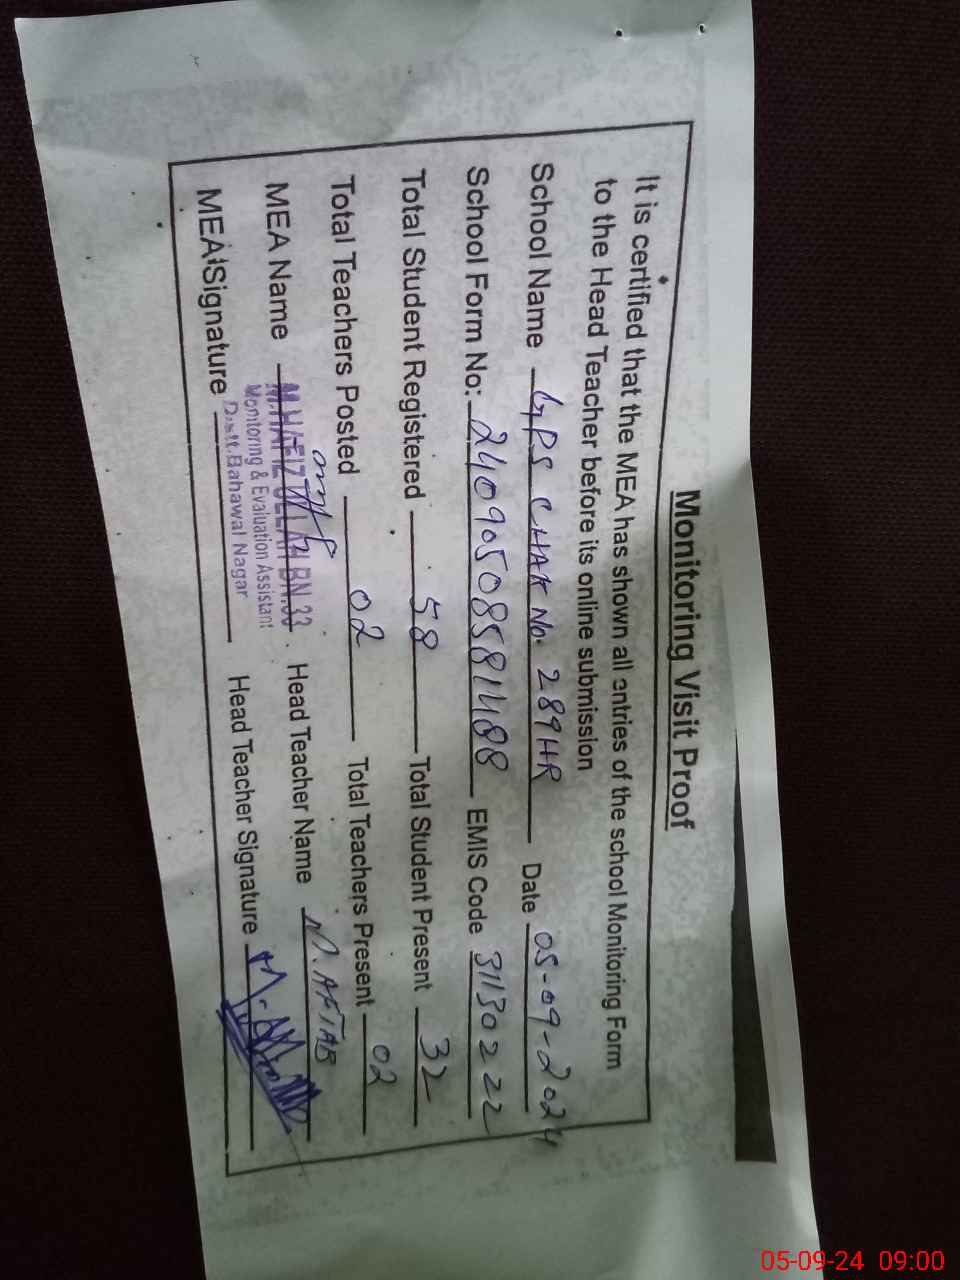 Monitoring Visit Proof
It is certified that the MEA has shown all entries of the school Monitoring Form
to the Head Teacher before its online submission
School Name GPS CHAK No. 289HR Date 05-09-2024
School Form No: 24090508581488 EMIS Code 31130222
Total Student Registered 58 Total Student Present 32
Total Teachers Posted 02 Total Teachers Present 02
MEA Name M.HAFIZ ULLAH BN.33 Head Teacher Name M. AFTAB
Monitoring & Evaluation Assistant
Distt.Bahawal Nagar
MEA Signature Head Teacher Signature
05-09-24 09:00